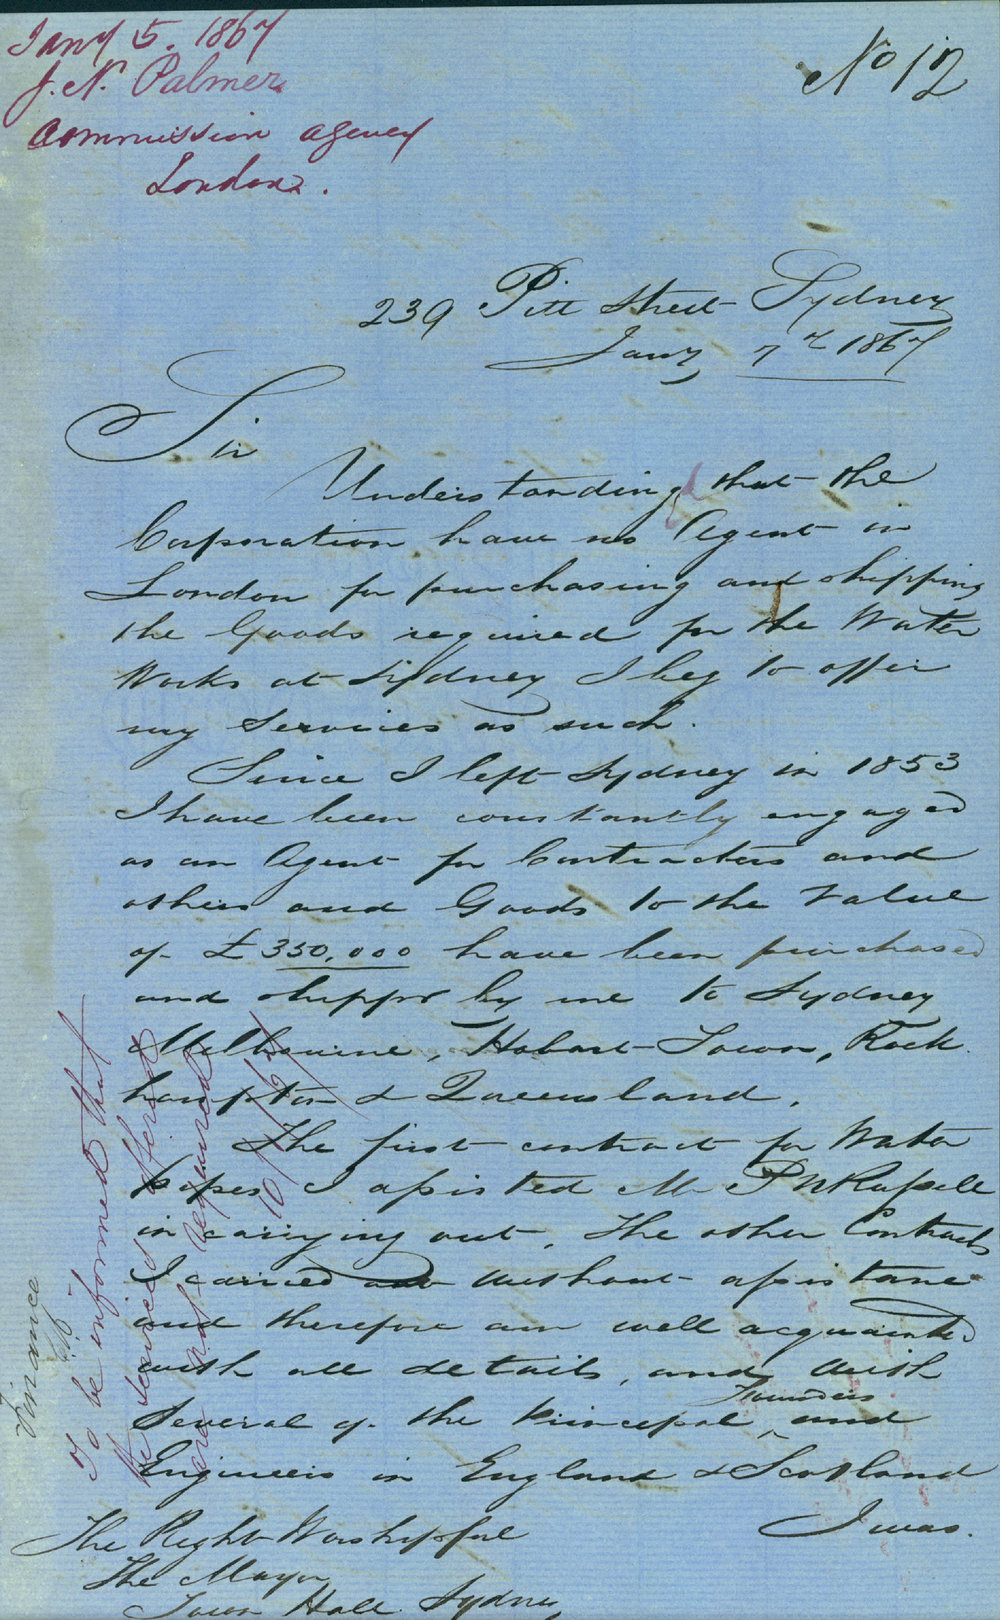 Jany 5. 1867
J. N. Palmer
Commission agency
London.
No 12
239 Pitt Street Sydney
Jany 7th 1867
Sir
Understanding that the
Corporation have no Agent in
London for purchasing and shipping
the Goods required for the Water
Works at Sydney I beg to offer
my services as such.
Since I left Sydney in 1853
I have been constantly engaged
as an Agent for Contractors and
others and Goods to the value
of £350,000 have been purchased
and shippd by me to Sydney
Melbourne, Hobart Town, Rock
hampton & Queensland.
The first contract for Water
pipes I assisted Mr P N Russell
in carrying out. The other Contracts
I carried out without assistance
and therefore am well acquainted
with all details, and with
Several of the Principal Founders and
Engineers in England & Scotland
I was.
The Right Worshipful
The Mayor
Town Hall Sydney
Finance
To be informed that
the services offered
are not required
10/1/67